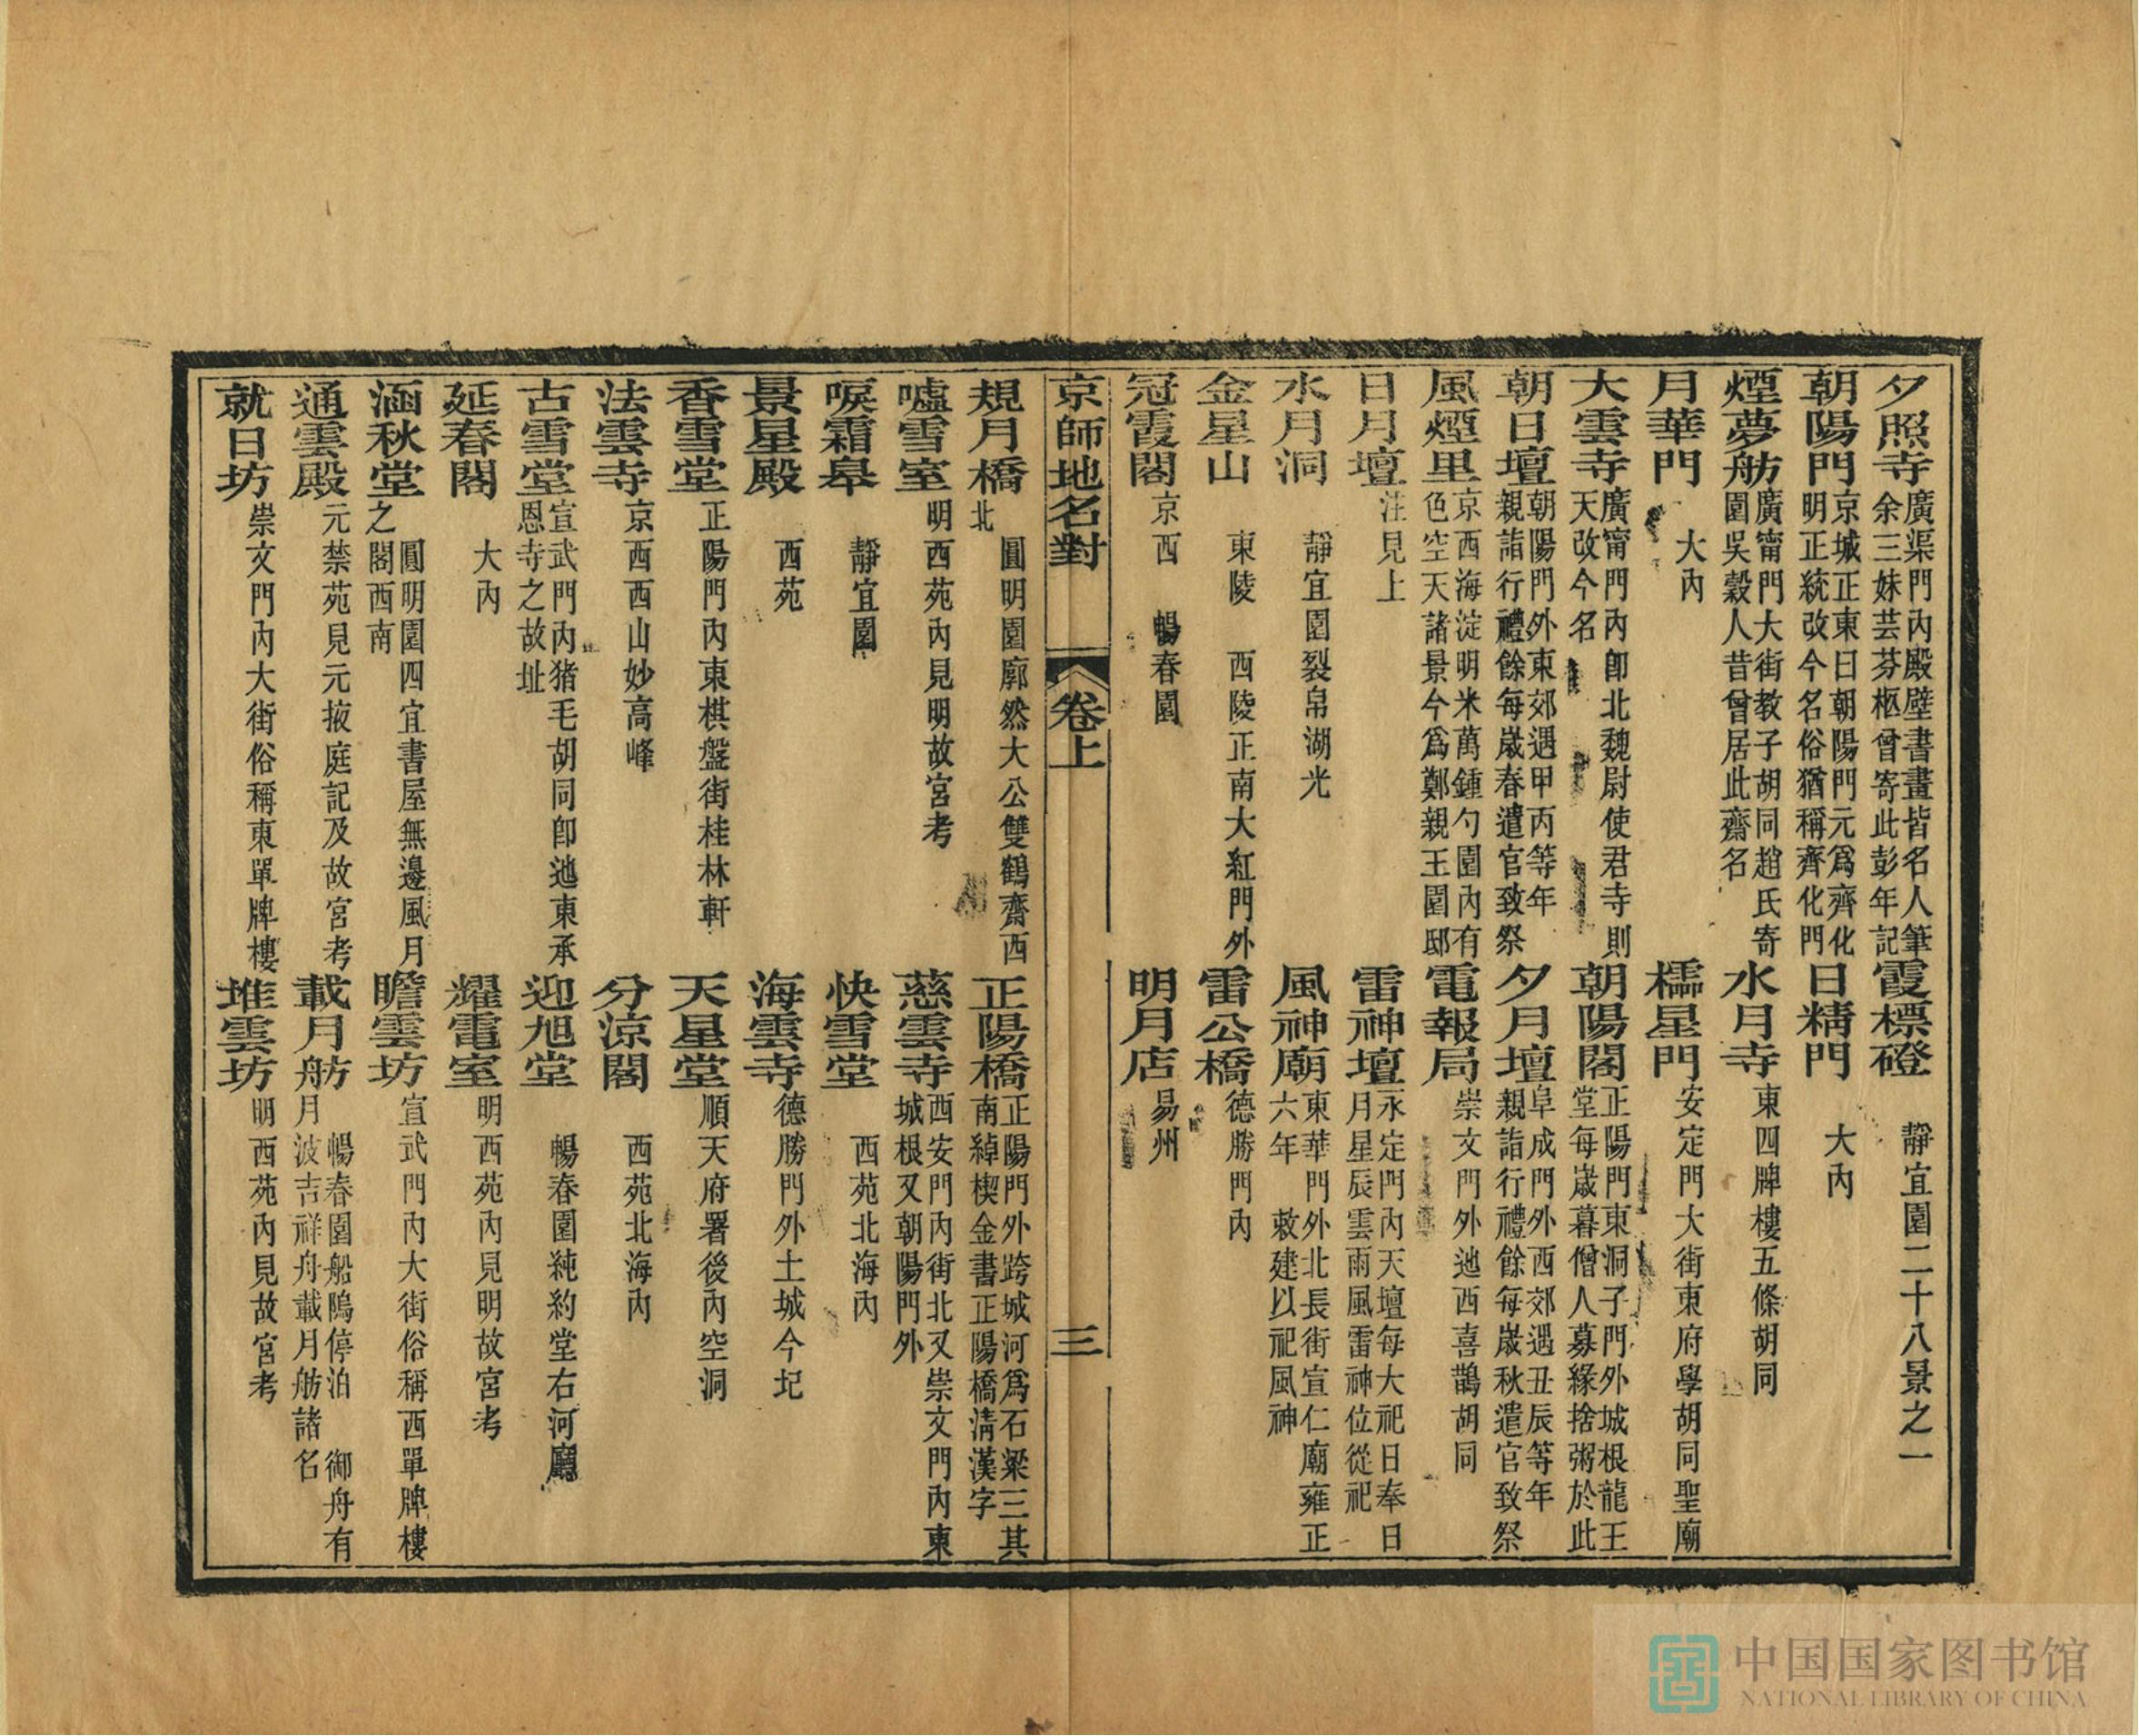 夕照寺廣渠門內殿壁書畫皆名人筆余三妹芸芬柩曾寄此彭年記霞標磴靜宜園二十八景之一
朝陽門京城正東曰朝陽門元爲齊化明正統改今名俗猶稱齊化門日精門大內
煙夢舫廣甯門大街教子胡同趙氏寄園吳穀人昔曾居此齋名水月寺東四牌樓五條胡同
月華門大內櫺星門安定門大街東府學胡同聖廟
大雲寺廣甯門內卽北魏尉使君寺則天改今名朝陽閣正陽門東洞子門外城根龍王堂每歲暮僧人募緣捨粥於此
朝日壇朝陽門外東郊遇甲丙等年親詣行禮餘每歲春遣官致祭夕月壇阜成門外西郊遇丑辰等年親詣行禮餘每歲秋遣官致祭
風煙里京西海淀明米萬鍾勺園內有色空天諸景今爲鄭親王園邸電報局崇文門外迤西喜鵲胡同
日月壇注見上雷神壇永定門內天壇每大祀日奉日月星辰雲雨風雷神位從祀
水月洞靜宜園裂帛湖光風神廟東華門外北長街宣仁廟雍正六年敕建以祀風神
金星山東陵西陵正南大紅門外雷公橋德勝門內
冠霞閣京西暢春園明月店易州
京師地名對卷上三
規月橋圓明園廓然大公雙鶴齋西北正陽橋正陽門外跨城河爲石梁三其南綽楔金書正陽橋淸漢字
噓雪室明西苑內見明故宮考慈雲寺西安門內街北又崇文門內東城根又朝陽門外
唳霜皋靜宜園快雪堂西苑北海內
景星殿西苑海雲寺德勝門外土城今圮
香雪堂正陽門內東棋盤街桂林軒天星堂順天府署後內空洞
法雲寺京西西山妙高峰分涼閣西苑北海內
古雪堂宣武門內猪毛胡同卽迤東承恩寺之故址迎旭堂暢春園純約堂右河廳
延春閣大內耀電室明西苑內見明故宮考
涵秋堂圓明園四宜書屋無邊風月之閣西南瞻雲坊宣武門內大街俗稱西單牌樓
通雲殿元禁苑見元掖庭記及故宮考載月舫暢春園船塢停泊御舟有月波吉祥舟載月舫諸名
就日坊崇文門內大街俗稱東單牌樓堆雲坊明西苑內見故宮考
中国国家图书馆
NATIONAL LIBRARY OF CHINA